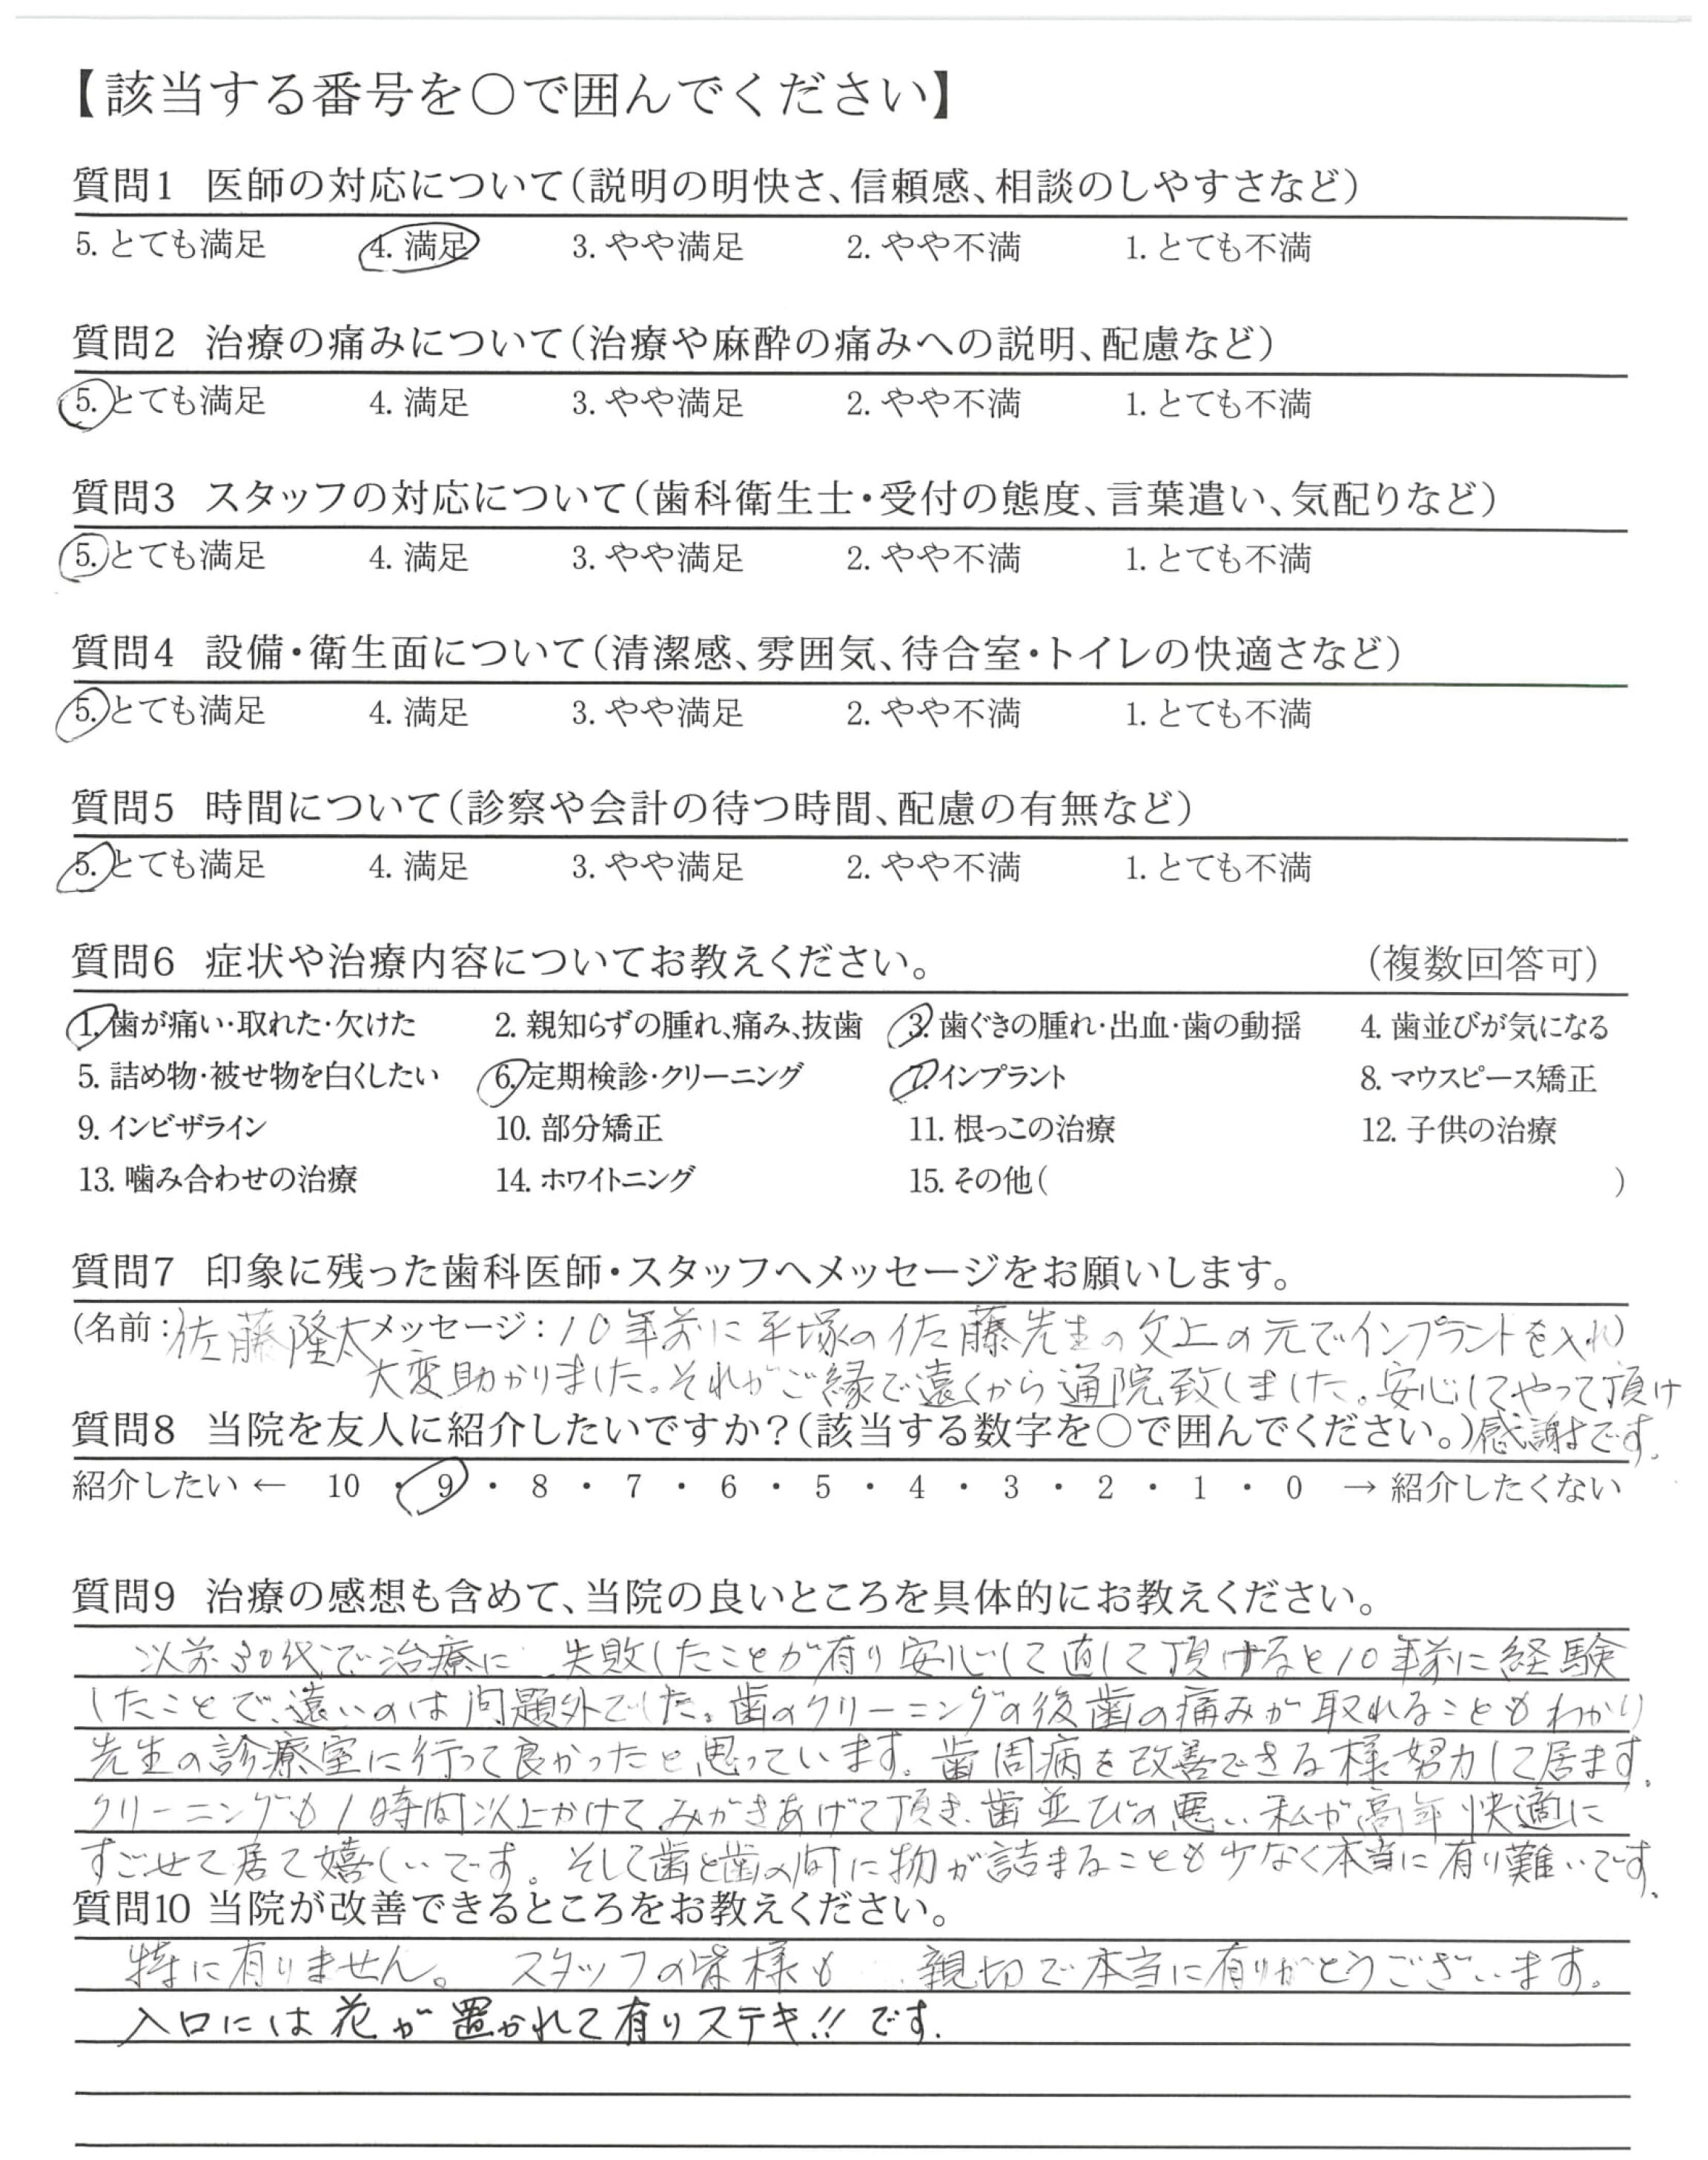 【該当する番号を〇で囲んでください】
質問1 医師の対応について(説明の明快さ、信頼感、相談のしやすさなど)
5. とても満足 4. 満足 3. やや満足 2. やや不満 1. とても不満
質問2 治療の痛みについて(治療や麻酔の痛みへの説明、配慮など)
5. とても満足 4. 満足 3. やや満足 2. やや不満 1. とても不満
質問3 スタッフの対応について(歯科衛生士・受付の態度、言葉遣い、気配りなど)
5. とても満足 4. 満足 3. やや満足 2. やや不満 1. とても不満
質問4 設備・衛生面について(清潔感、雰囲気、待合室・トイレの快適さなど)
5. とても満足 4. 満足 3. やや満足 2. やや不満 1. とても不満
質問5 時間について(診察や会計の待つ時間、配慮の有無など)
5. とても満足 4. 満足 3. やや満足 2. やや不満 1. とても不満
質問6 症状や治療内容についてお教えください。 (複数回答可)
1. 歯が痛い・取れた・欠けた 2. 親知らずの腫れ、痛み、抜歯 3. 歯ぐきの腫れ・出血・歯の動揺 4. 歯並びが気になる
5. 詰め物・被せ物を白くしたい 6. 定期検診・クリーニング 7. インプラント 8. マウスピース矯正
9. インビザライン 10. 部分矯正 11. 根っこの治療 12. 子供の治療
13. 噛み合わせの治療 14. ホワイトニング 15. その他( )
質問7 印象に残った歯科医師・スタッフへメッセージをお願いします。
(名前:佐藤隆太 メッセージ:10年前に平塚の佐藤先生の父上の元でインプラントを入れ)
大変助かりました。それがご縁で遠くから通院致しました。安心してやって頂け
感謝です。
質問8 当院を友人に紹介したいですか?(該当する数字を〇で囲んでください。)
紹介したい ← 10 ・ 9 ・ 8 ・ 7 ・ 6 ・ 5 ・ 4 ・ 3 ・ 2 ・ 1 ・ 0 → 紹介したくない
質問9 治療の感想も含めて、当院の良いところを具体的にお教えください。
以前30代で治療に 失敗したことが有り安心して直して頂けると10年前に経験
したことで、遠いのは問題外でした。歯のクリーニングの後歯の痛みが取れることもわかり
先生の診療室に行って良かったと思っています。歯周病を改善できる様努力して居ます。
クリーニングも1時間以上かけてみがきあげて頂き、歯並びの悪い私が高年快適に
すごせて居て嬉しいです。そして歯と歯の間に物が詰まることも少なく本当に有り難いです。
質問10 当院が改善できるところをお教えください。
特に有りません。 スタッフの皆様も 親切で本当に有りがとうございます。
入口には花が置かれて有りステキ!!です。